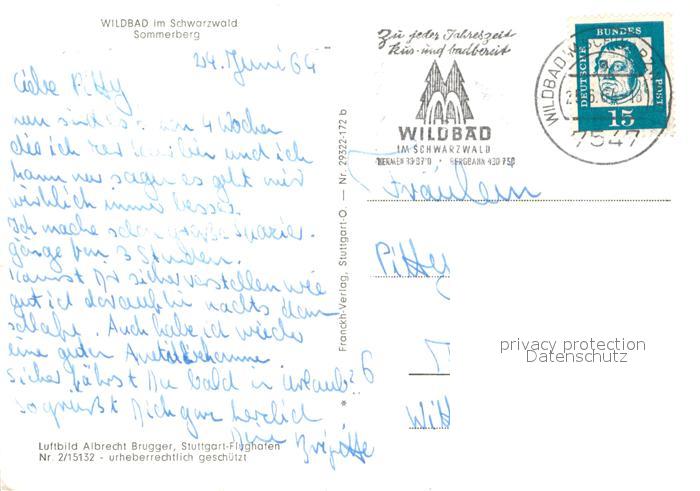 WILDBAD im Schwarzwald
Sommerberg
24. Juni 64
Liebe Pitty
nun sind es 4 Wochen
die ich hier bin und ich
kann nur sagen es geht mir
wirklich immer besser.
Ich mache schon große Spazier-
gänge von 3 Stunden.
Kannst Dir sicher vorstellen wie
gut ich daraufhin nachts dann
schlafe. Auch habe ich wieder
eine guten
sicher fährst Du bald in Urlaub?
so grüßt Dich ganz herzlich
Deine Brigitte
Luftbild Albrecht Brugger, Stuttgart-Flughafen
Nr. 2/15132 - urheberrechtlich geschützt
Franckh-Verlag, Stuttgart-O. — Nr. 29322-172 b
Zu jeder Jahreszeit
kur- und badbereit
WILDBAD
IM SCHWARZWALD
THERMEN BERGBAHN 430 750
WILDBAD
7547
DEUTSCHE BUNDESPOST
15
Fräulein
Pitty
6
privacy protection
Datenschutz